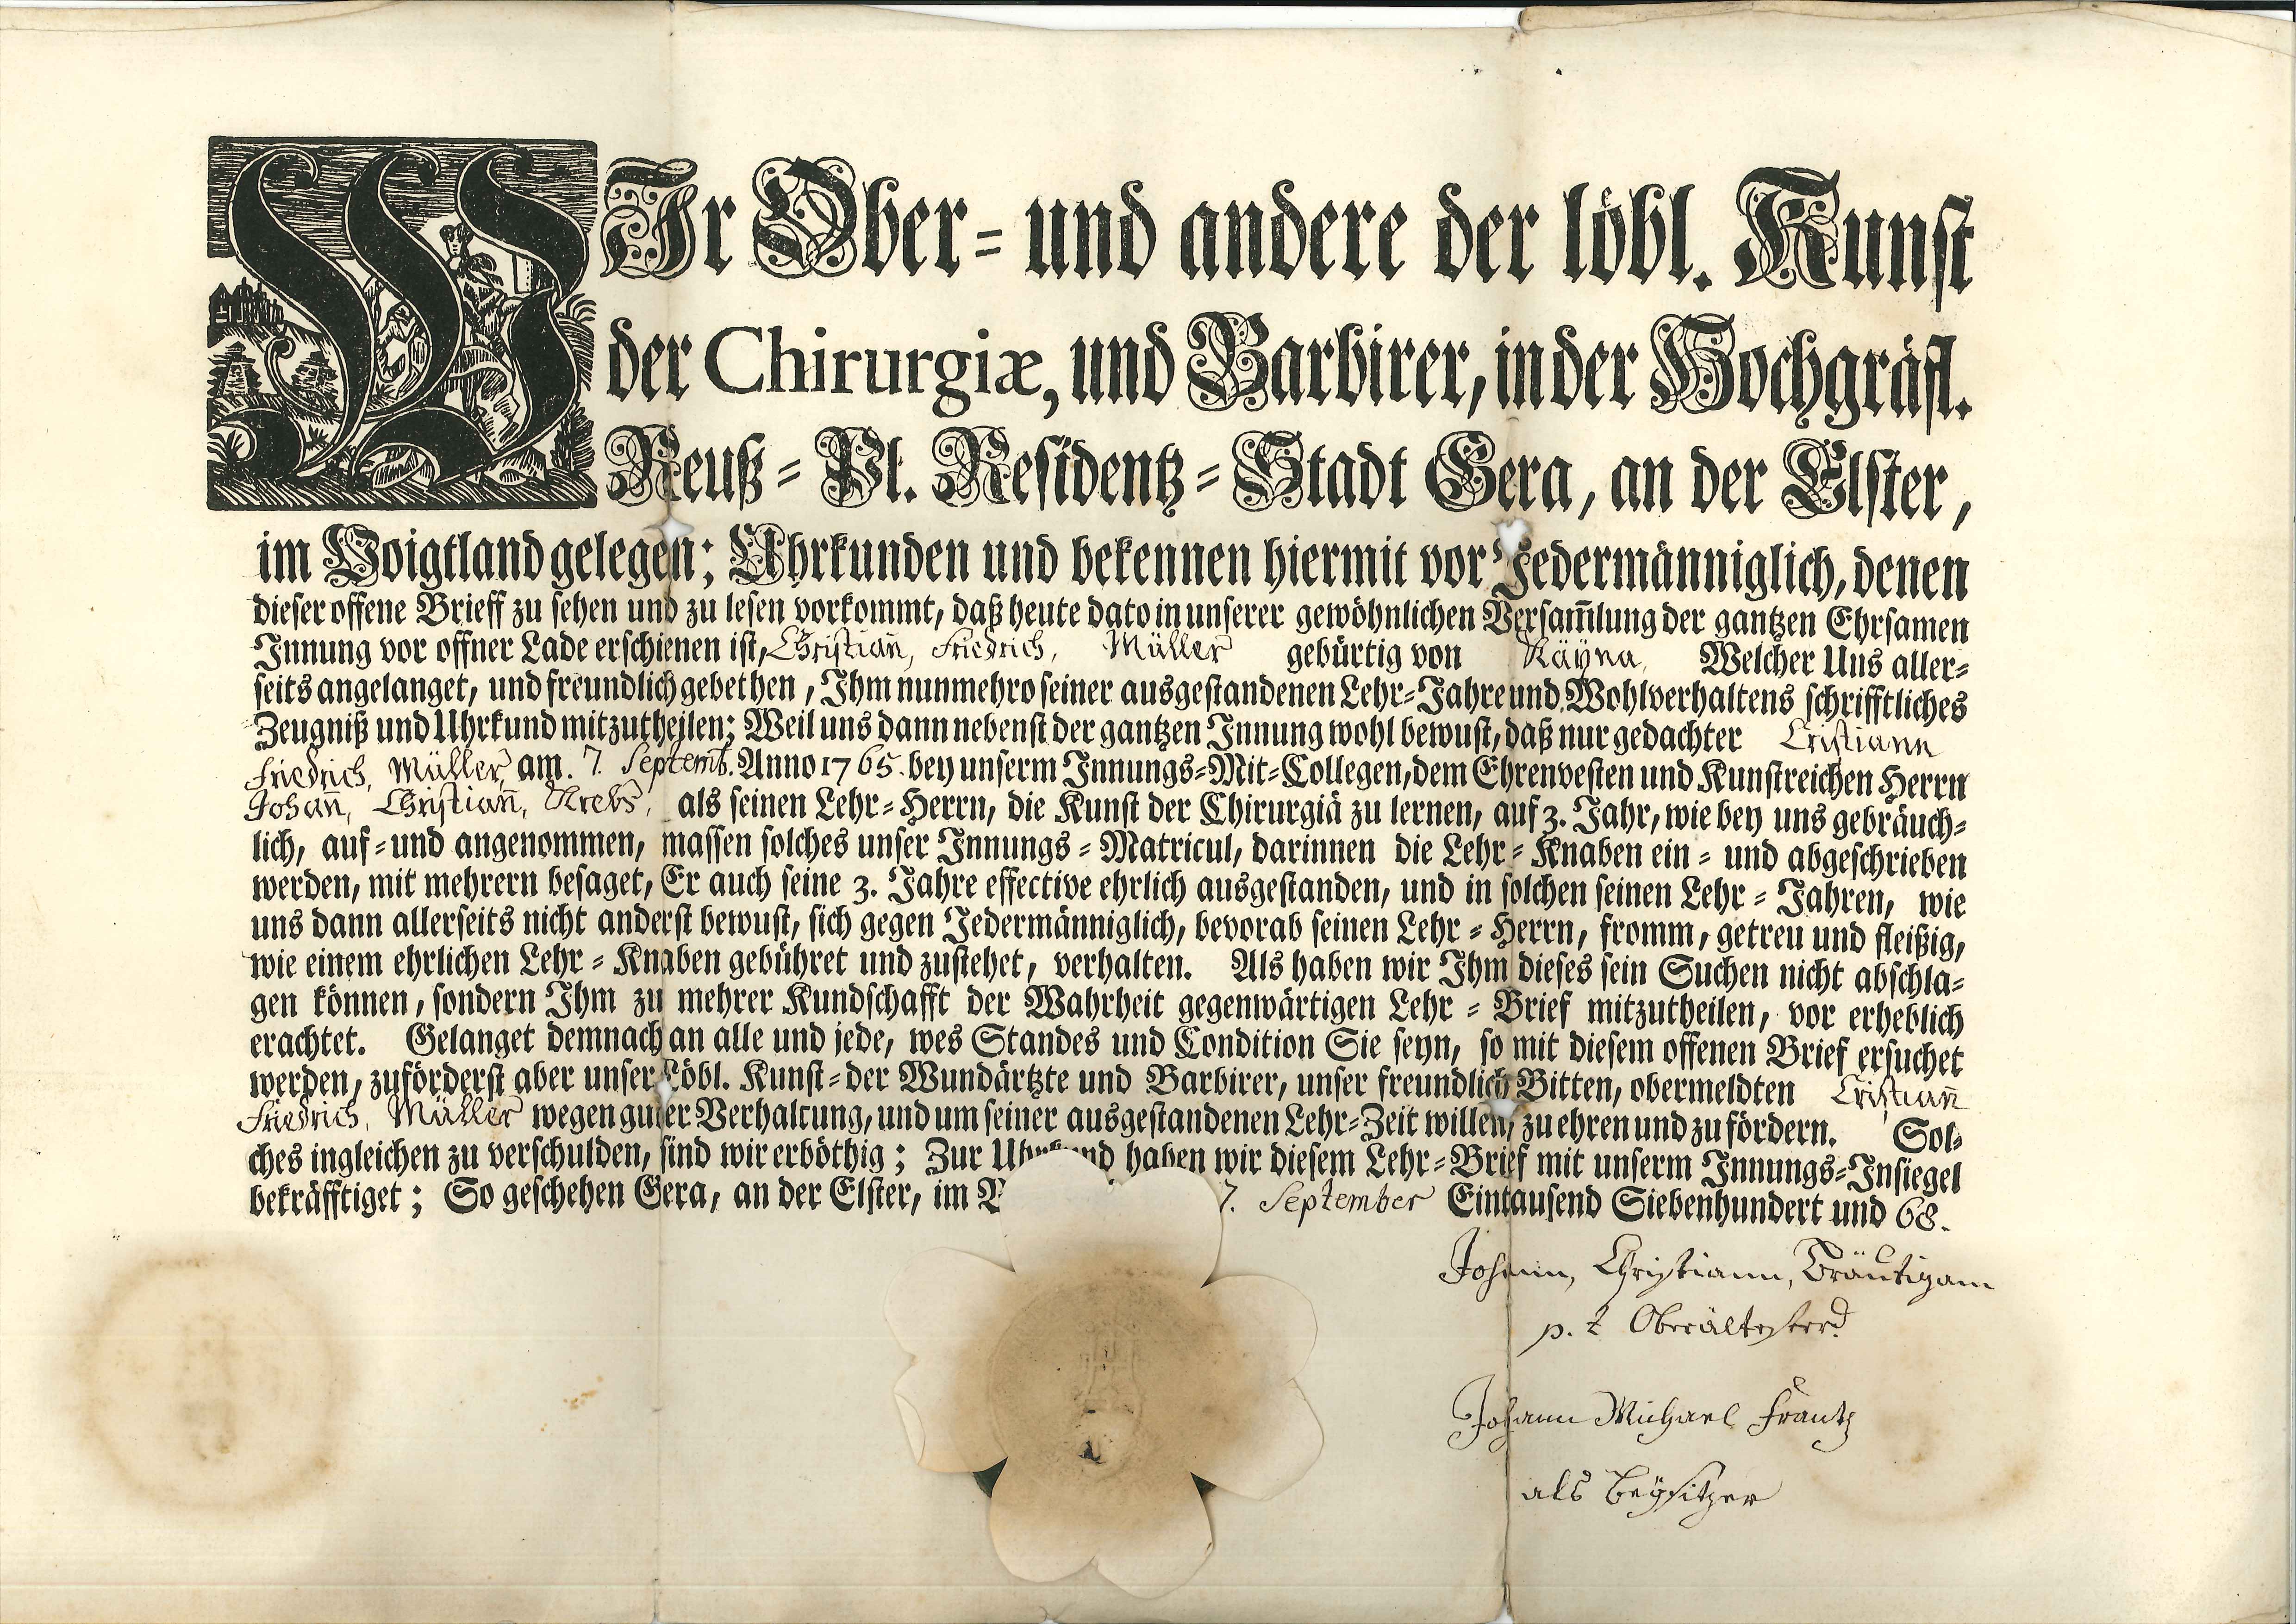 WIr Ober= und andere der löbl. Kunst
der Chirurgiæ, und Barbirer, in der Hochgräfl.
Reuß=Pl. Residentz=Stadt Gera, an der Elster,
im Voigtland gelegen; Uhrkunden und bekennen hiermit vor Jedermänniglich, denen
dieser offene Brieff zu sehen und zu lesen vorkommt, daß heute dato in unserer gewöhnlichen Versam̄lung der gantzen Ehrsamen
Innung vor offner Lade erschienen ist, Christian̄, Friedrich, Müller gebürtig von Käyna, Welcher Uns aller=
seits angelanget, und freundlich gebethen, Ihm nunmehro seiner ausgestandenen Lehr=Jahre und Wohlverhaltens schrifftliches
Zeugniß und Uhrkund mitzutheilen; Weil uns dann nebenst der gantzen Innung wohl bewust, daß nur gedachter Cristiann
Friedrich, Müller, am. 7. Septemb. Anno 1765. bey unserm Innungs=Mit=Collegen, dem Ehrenvesten und Kunstreichen Herrn
Johan, Christian̄, Krebs, als seinen Lehr=Herrn, die Kunst der Chirurgiä zu lernen, auf 3. Jahr, wie bey uns gebräuch=
lich, auf=und angenommen, massen solches unser Innungs=Matricul, darinnen die Lehr=Knaben ein= und abgeschrieben
werden, mit mehrern besaget, Er auch seine 3. Jahre effective ehrlich ausgestanden, und in solchen seinen Lehr=Jahren, wie
uns dann allerseits nicht anderst bewust, sich gegen Jedermänniglich, bevorab seinen Lehr=Herrn, fromm, getreu und fleißig,
wie einem ehrlichen Lehr=Knaben gebühret und zustehet, verhalten. Als haben wir Ihm dieses sein Suchen nicht abschla=
gen können, sondern Ihm zu mehrer Kundschafft der Wahrheit gegenwärtigen Lehr=Brief mitzutheilen, vor erheblich
erachtet. Gelanget demnach an alle und jede, wes Standes und Condition Sie seyn, so mit diesem offenen Brief ersuchet
werden, zuförderst aber unser Löbl. Kunst=der Wundärtzte und Barbirer, unser freundlich Bitten, obermeldten Cristian̄
Friedrich, Müller wegen guter Verhaltung, und um seiner ausgestandenen Lehr=Zeit willen, zu ehren und zu fördern. Sol=
ches ingleichen zu verschulden, sind wir erböthig; Zur Uhrkund haben wir diesem Lehr=Brief mit unserm Innungs=Insiegel
bekräfftiget; So geschehen Gera, an der Elster, im 7. September Eintausend Siebenhundert und 68.
Johann, Christiann, Bräutigam
p. t Oberältester
Johann Michael Frantz
als Beÿsitzer